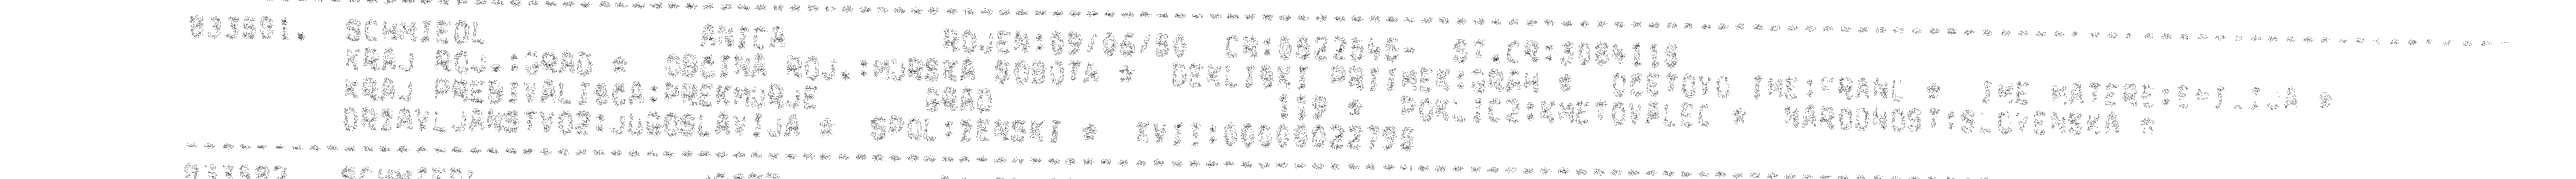 033581. SCHMIEDL ANICA ROJEN:09/06/50 CR:0822545- ST.CR:3084118
KRAJ ROJ.:GRAD * OBCINA ROJ.:MURSKA SOBOTA * DEKLISKI PRIIMEK:GRAH * OCETOVO IME:FRANL * IME MATERE: *
KRAJ PREBIVALISCA:PREKMURJE GRAD 119 * POKLIC2:KMETOVALEC * NARODNOST:SLOVENSKA *
DRZAVLJANSTVO2:JUGOSLAVIJA * SPOL:ZENSKI * XVII:00000022798